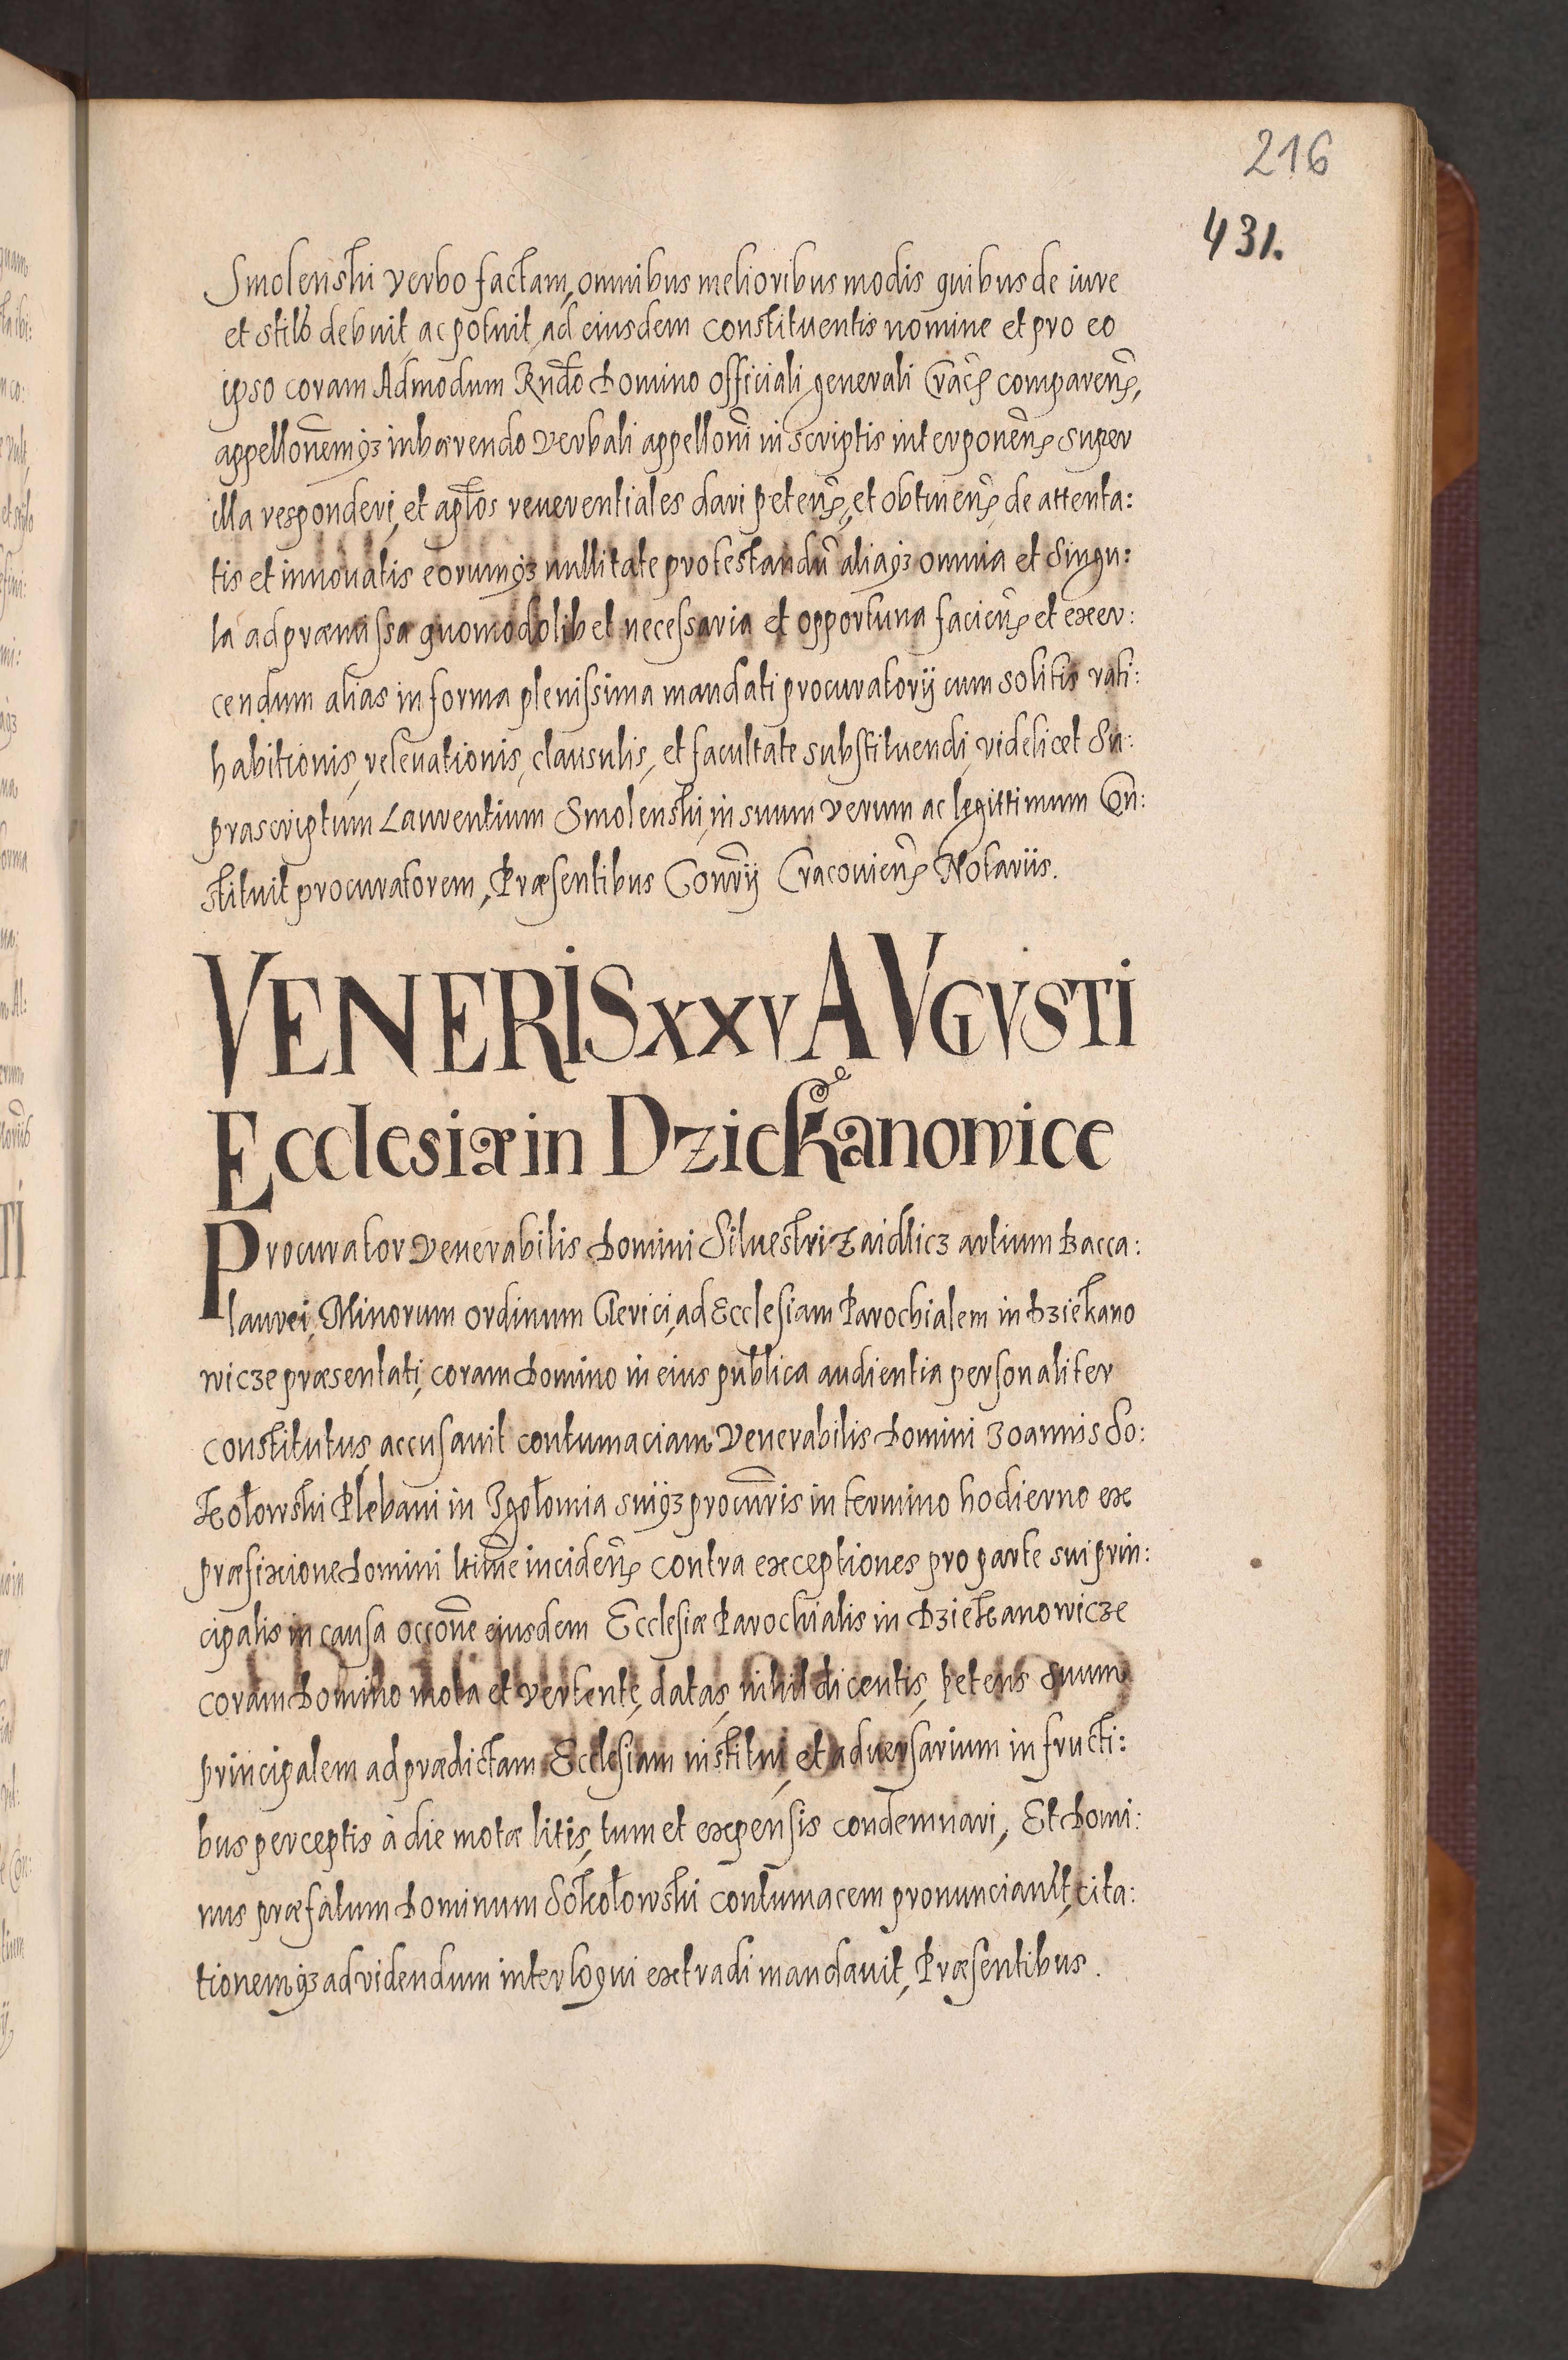 216
431.
Smolenski verbo factam, omnibus melioribus modis quibus de iure
et stilo debuit, ac potuit, ad eiusdem constituentis nomine et pro eo
ipso coram Admodum Rndo Domino officiali generali Crac̃ comparen̄,
appellonemq3 inhærendo verbali appelloni in scriptis interponen̄ super
illa responderi, et aptos reverentiales dari peten̄, et obtinen̄ de attenta:
tis et innouatis eorumq3 nullitate protestandū aliaq3 omnia et singu:
la ad præmissa quomodolibet necessaria et opportuna facien̄ et exer:
cendum alias in forma plenissima mandati procuratorij cum solitis rati:
habitionis, releuationis, clausulis, et facultate substituendi, videlicet Su:
prascriptum Laurentium Smolenski, in suum verum ac legittimum Con̄:
stituit procuratorem, Præsentibus Consrij Cracouien̄ Notariis.
VENERIS XXV AVGVSTI
Ecclesiæ in Dziekanowice
Procurator Venerabilis Domini Siluestri Zaidlicz artium Bacca:
laurei, Minorum ordinum Clerici, ad Ecclesiam Parochialem in Dziekano
wicze præsentati, coram Domino in eius publica audientia personaliter
constitutus, accusauit contumaciam Venerabilis Domini Joannis So:
kołowski Plebani in Igołomia suiq3 procuris in termino hodierno ex
præfixione Domini ltime inciden̄ contra exceptiones pro parte sui prin:
cipalis in causa occone eiusdem Ecclesiæ Parochialis in Dziekanowicze
coram Domino mota et vertente, datas, nihil dicentis, Petens suum
principalem ad prædictam Ecclesiam institui, et aduersarium in fructi:
bus perceptis à die motæ litis, tum et expensis condemnari, Et Domi:
nus præfatum Dominum Sokołowski contumacem pronunciauit, cita:
tionemq3 ad videndum interloqui extradi mandauit, Præsentibus.